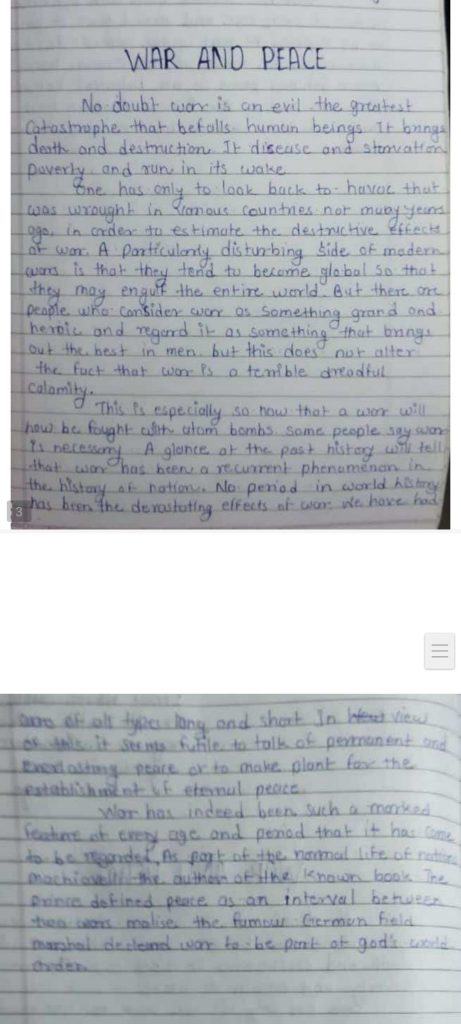 WAR AND PEACE
No doubt war is an evil the greatest
Catastrophe that befalls human beings. It brings
death and destruction. It disease and starvation
poverty, and ruin in its wake
One has only to look back to havoc that
was wrought in various countries not many years
ago, in order to estimate the destructive effects
of war. A particularly disturbing side of modern
wars is that they tend to become global so that
they may engulf the entire world. But there are
people who consider war as something grand and
heroic and regard it as something that brings
out the best in men. but this does not alter
the fact that war is a terrible dreadful
Calamity.
This is especially so now that a war will
now be fought with atom bombs. some people say war
is necessary. A glance at the past history will tell
that war has been a recurrent phenomenon in
the history of nation. No period in world history
has been the devastating effects of war. We have had
3
wars of all types long and short In view
of this it seems futile to talk of permanent and
Everlasting peace or to make plant for the
establishment of eternal peace.
War has indeed been such a marked
feature of every age and period that it has come
to be regarded, As part of the normal life of nation
machiavelli the author of the known book The
prince defined peace as an interval between
two wars molise the famous German field
marshal declared war to be part of god's world
order.